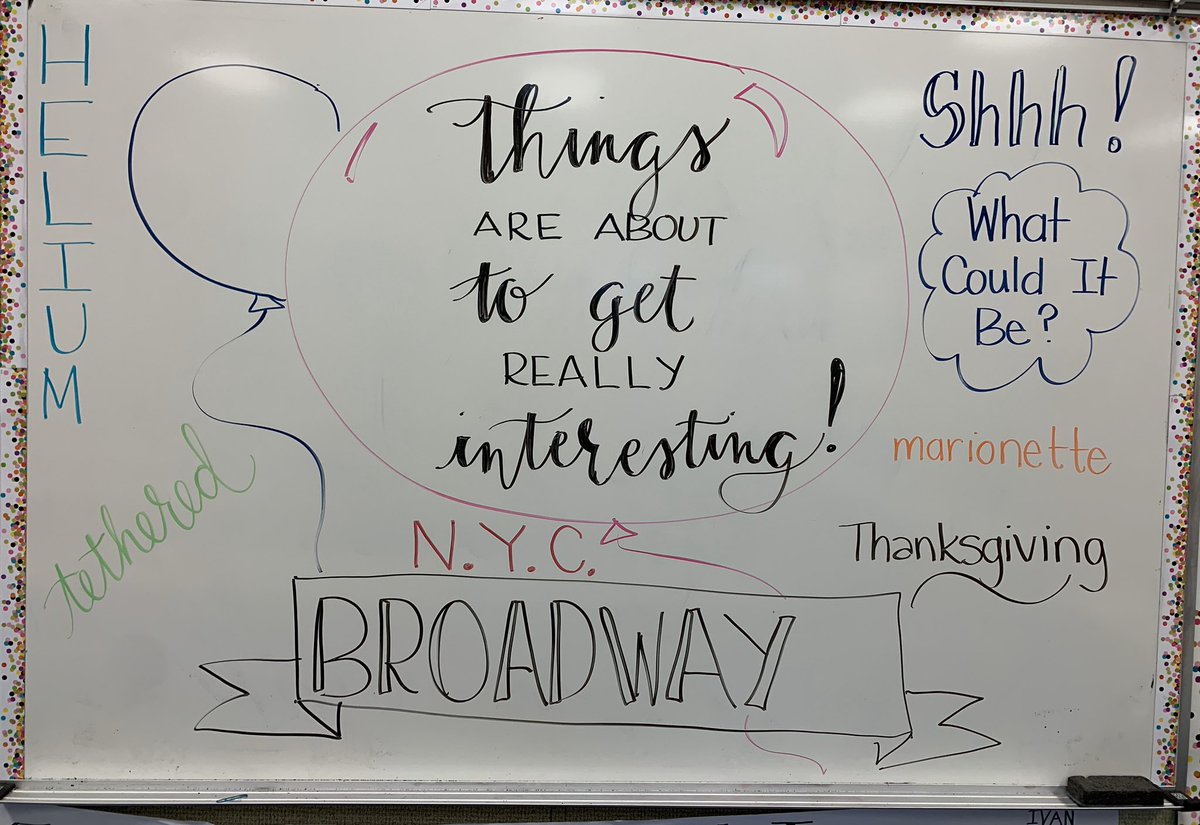 HELIUM
things
ARE ABOUT
to get
REALLY
interesting!
Shhh!
What
Could It
Be?
marionette
tethered
Thanksgiving
N.Y.C.
BROADWAY
IVAN